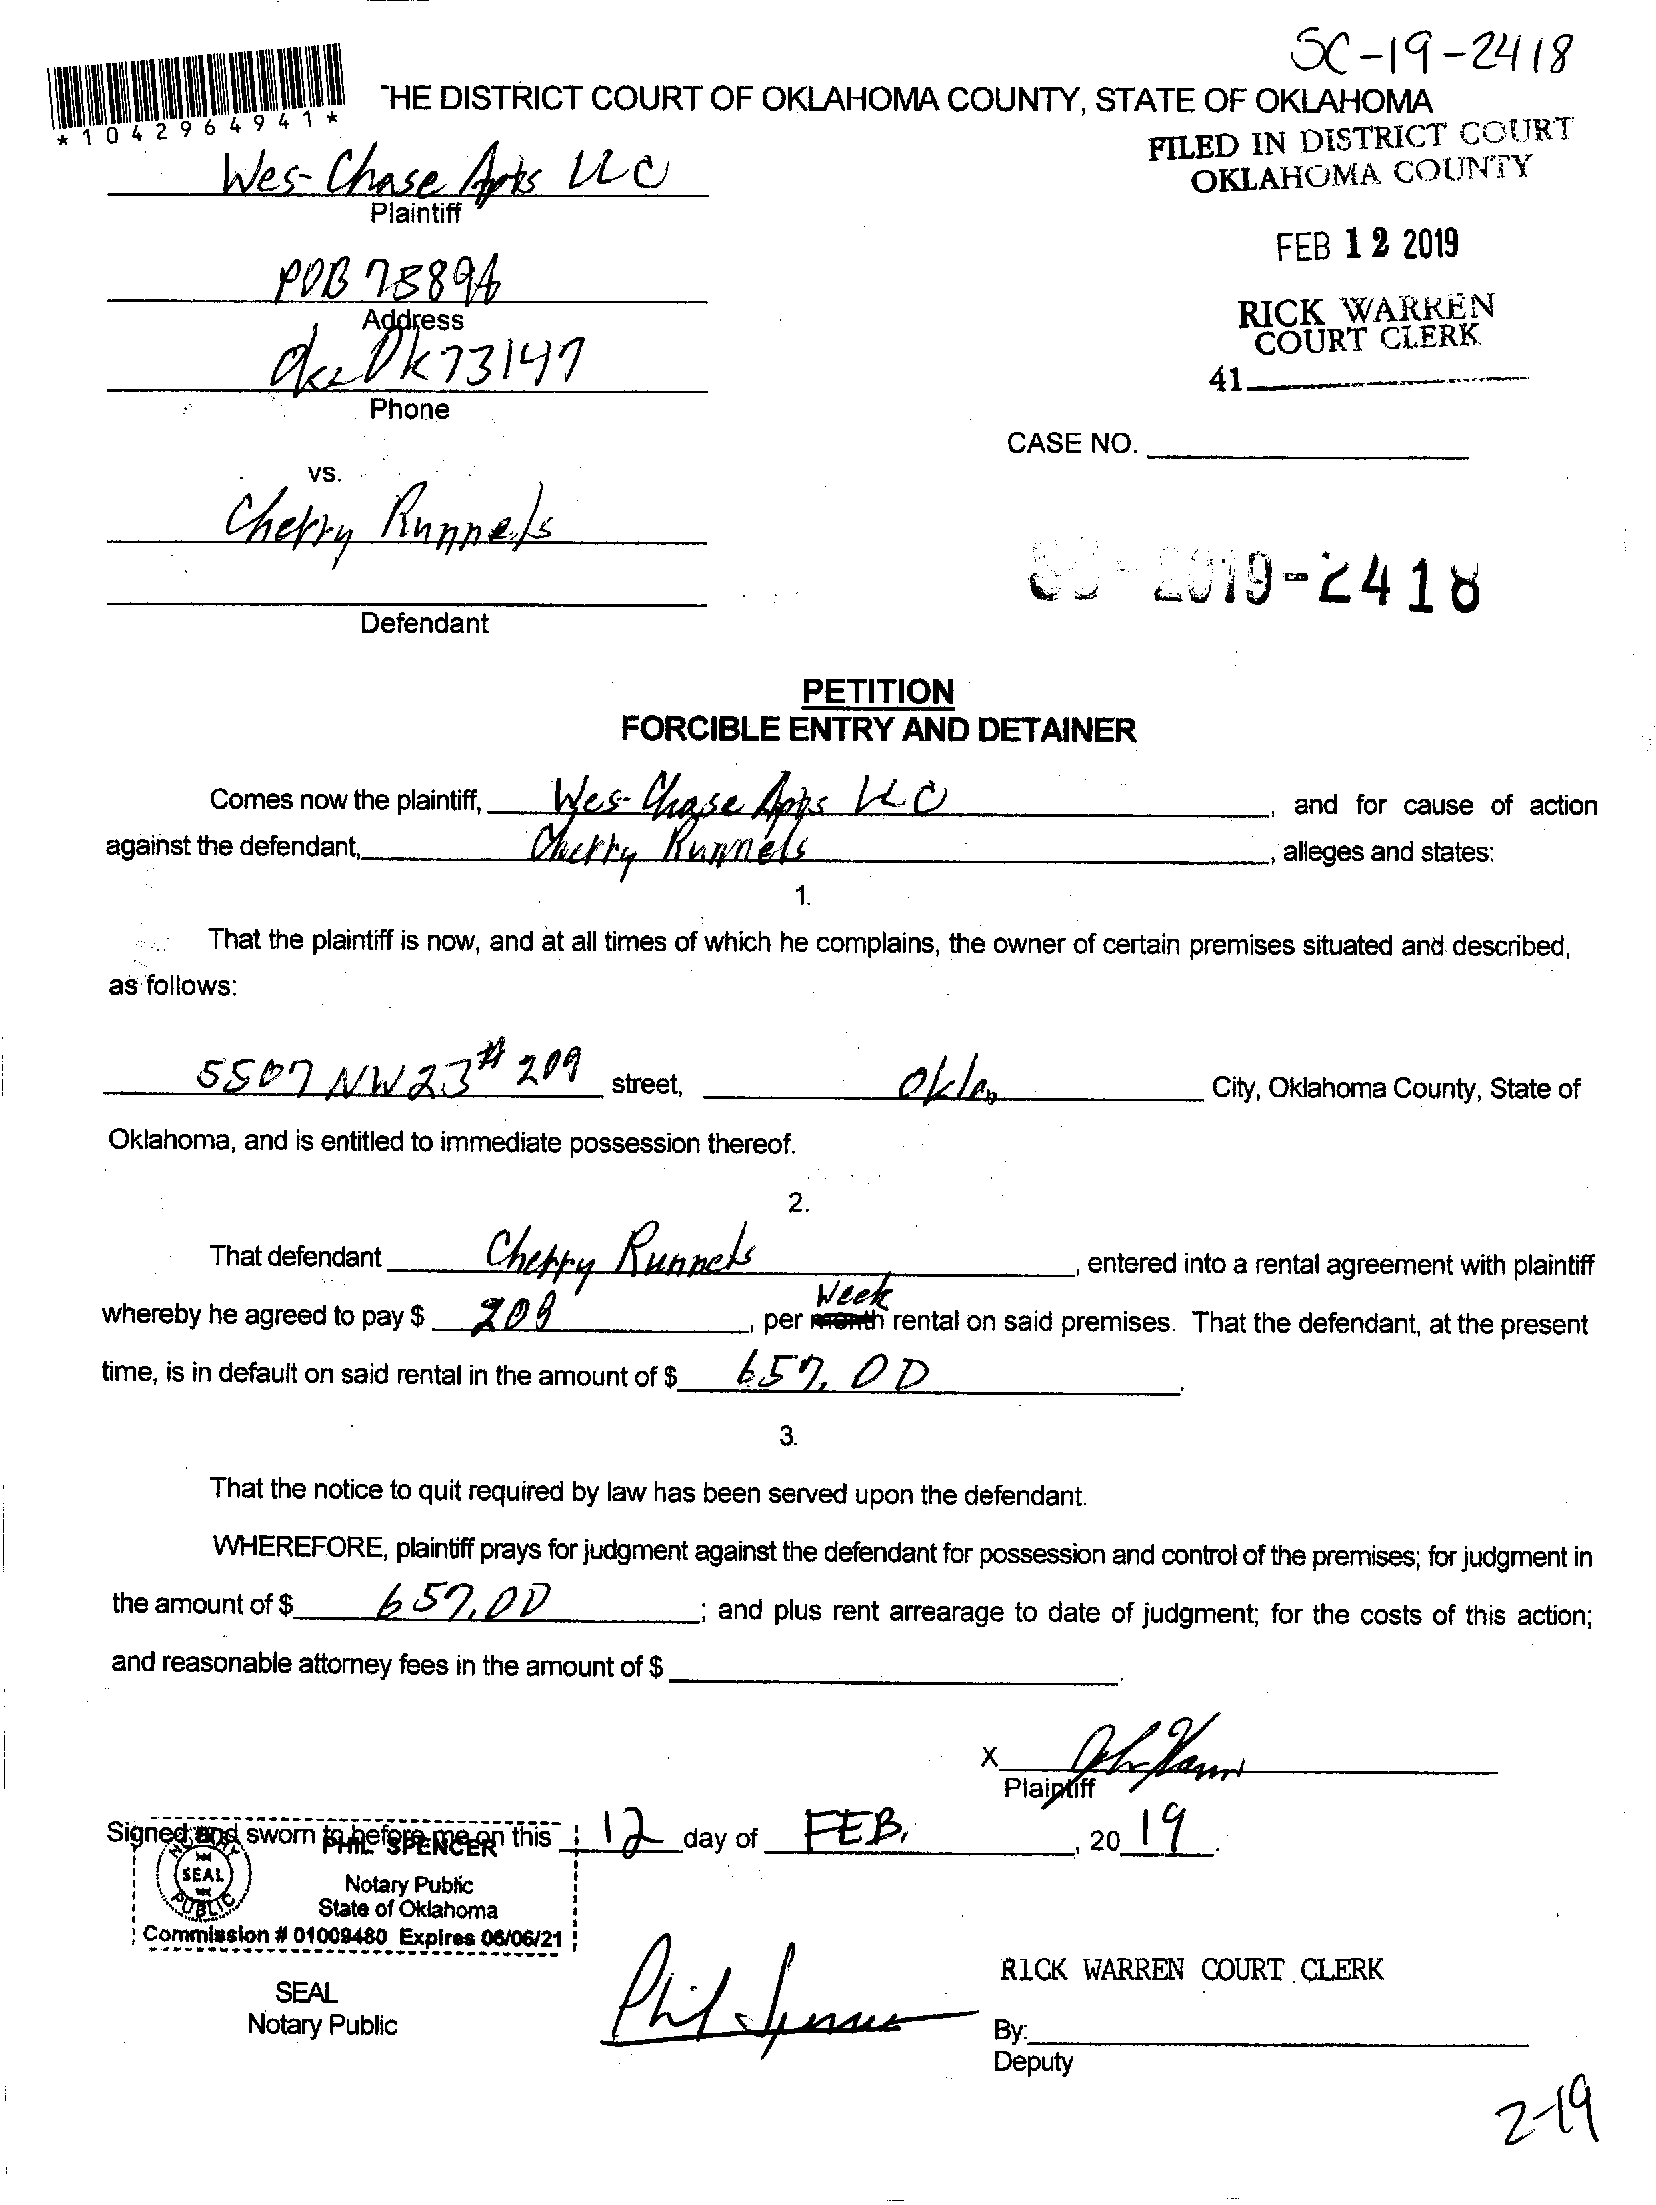 SC-19-2418
*1042964941*
THE DISTRICT COURT OF OKLAHOMA COUNTY, STATE OF OKLAHOMA
FILED IN DISTRICT COURT
OKLAHOMA COUNTY
Wes-Chase Apts LLC
Plaintiff
FEB 12 2019
POB 75896
Address
RICK WARREN
COURT CLERK
Okc Ok 73147
41
Phone
CASE NO.
vs.
Cherry Runnels
SC-2019-2418
Defendant
PETITION
FORCIBLE ENTRY AND DETAINER
Comes now the plaintiff, Wes-Chase Apts LLC, and for cause of action
against the defendant, Cherry Runnels, alleges and states:
1.
That the plaintiff is now, and at all times of which he complains, the owner of certain premises situated and described,
as follows:
5507 NW 23 # 209 street, Okla City, Oklahoma County, State of
Oklahoma, and is entitled to immediate possession thereof.
2.
That defendant Cherry Runnels, entered into a rental agreement with plaintiff
Week
whereby he agreed to pay $ 209, per month rental on said premises. That the defendant, at the present
time, is in default on said rental in the amount of $ 657.00.
3.
That the notice to quit required by law has been served upon the defendant.
WHEREFORE, plaintiff prays for judgment against the defendant for possession and control of the premises; for judgment in
the amount of $ 657.00; and plus rent arrearage to date of judgment; for the costs of this action;
and reasonable attorney fees in the amount of $.
X
Plaintiff
Signed and sworn to before me on this 12 day of FEB, 2019.
PHIL SPENCER
NOTARY SEAL PUBLIC
Notary Public
State of Oklahoma
Commission # 01009480 Expires 06/06/21
RICK WARREN COURT CLERK
SEAL
Notary Public
Phil Spencer
By:
Deputy
2-19